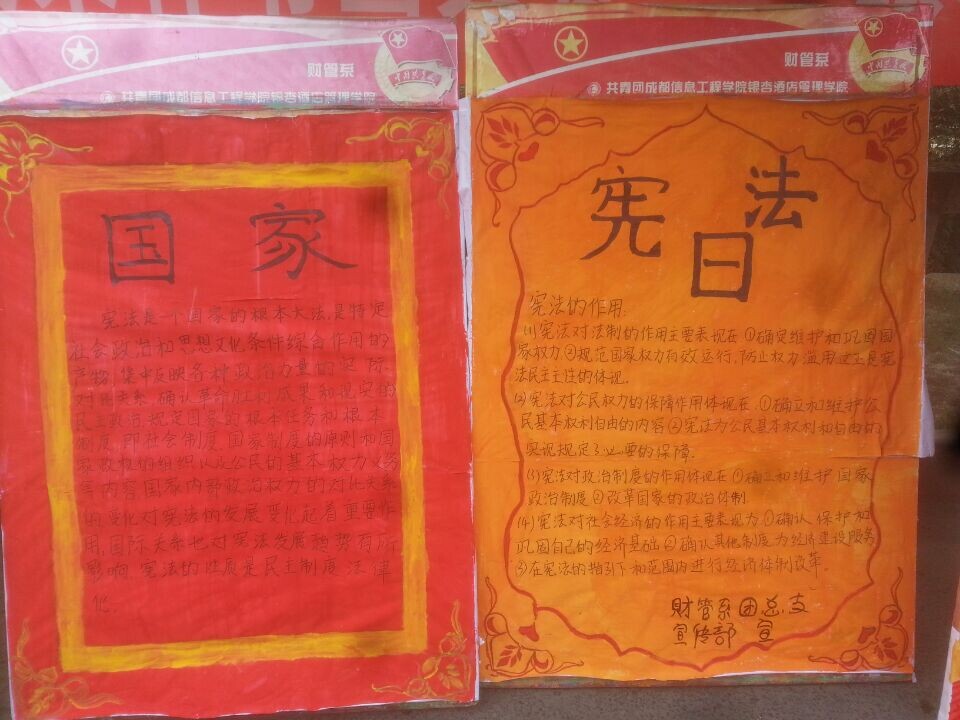 财管系
共青团成都信息工程学院银杏酒店管理学院
国家
宪法是一个国家的根本大法,是特定
社会政治和思想文化条件综合作用的
产物,集中反映各种政治力量的实际
对比关系,确认革命胜利成果和现实的
民主政治,规定国家的根本任务和根本
制度,即社会制度,国家制度的原则和国
家政权的组织以及公民的基本权力义务
等内容国家内部政治权力的对比关系
的变化对宪法的发展变化起着重要作
用,国际关系也对宪法发展趋势有所
影响.宪法的性质是民主制度法律
化.
财管系
共青团成都信息工程学院银杏酒店管理学院
宪法
日
宪法的作用:
(1)宪法对法制的作用主要表现在①确定维护和巩固国
家权力②规范国家权力有效运行,防止权力滥用这正是宪
法民主主性的体现.
(2)宪法对公民权力的保障作用体现在.①确立和维护公
民基本权利自由的内容②宪法为公民基本权利和自由的
实现规定了必要的保障.
(3)宪法对政治制度的作用体现在①确立和维护国家
政治制度②改革国家的政治体制
(4)宪法对社会经济的作用主要表现为①确认保护和
巩固自己的经济基础②确认其他制度为经济建设服务
③在宪法的指引下和范围内进行经济体制改革.
财管系团总支
宣传部 宣